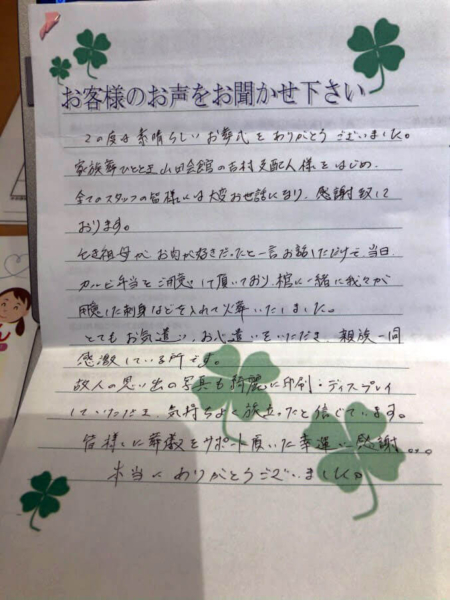 お客様のお声をお聞かせ下さい
この度は素晴らしいお葬式をありがとうございました。
家族葬ひとと芝山田会館の吉村支配人様をはじめ、
全てのスタッフの皆様には大変お世話になり、感謝致して
おります。
亡き祖母が、お肉が好きだったと一言お話しただけで、当日
カルビ弁当をご用意して頂いており、棺に一緒に我々が
用意した刺身などを入れて火葬いたしました。
とてもお気遣い、お心遣いをいただき、親族一同
感激している所です。
故人の思い出の写真も綺麗に印刷・ディスプレイ
していただき、気持ちよく旅立ったと信じています。
皆様に葬儀をサポート頂いた幸運に感謝...。
本当にありがとうございました。